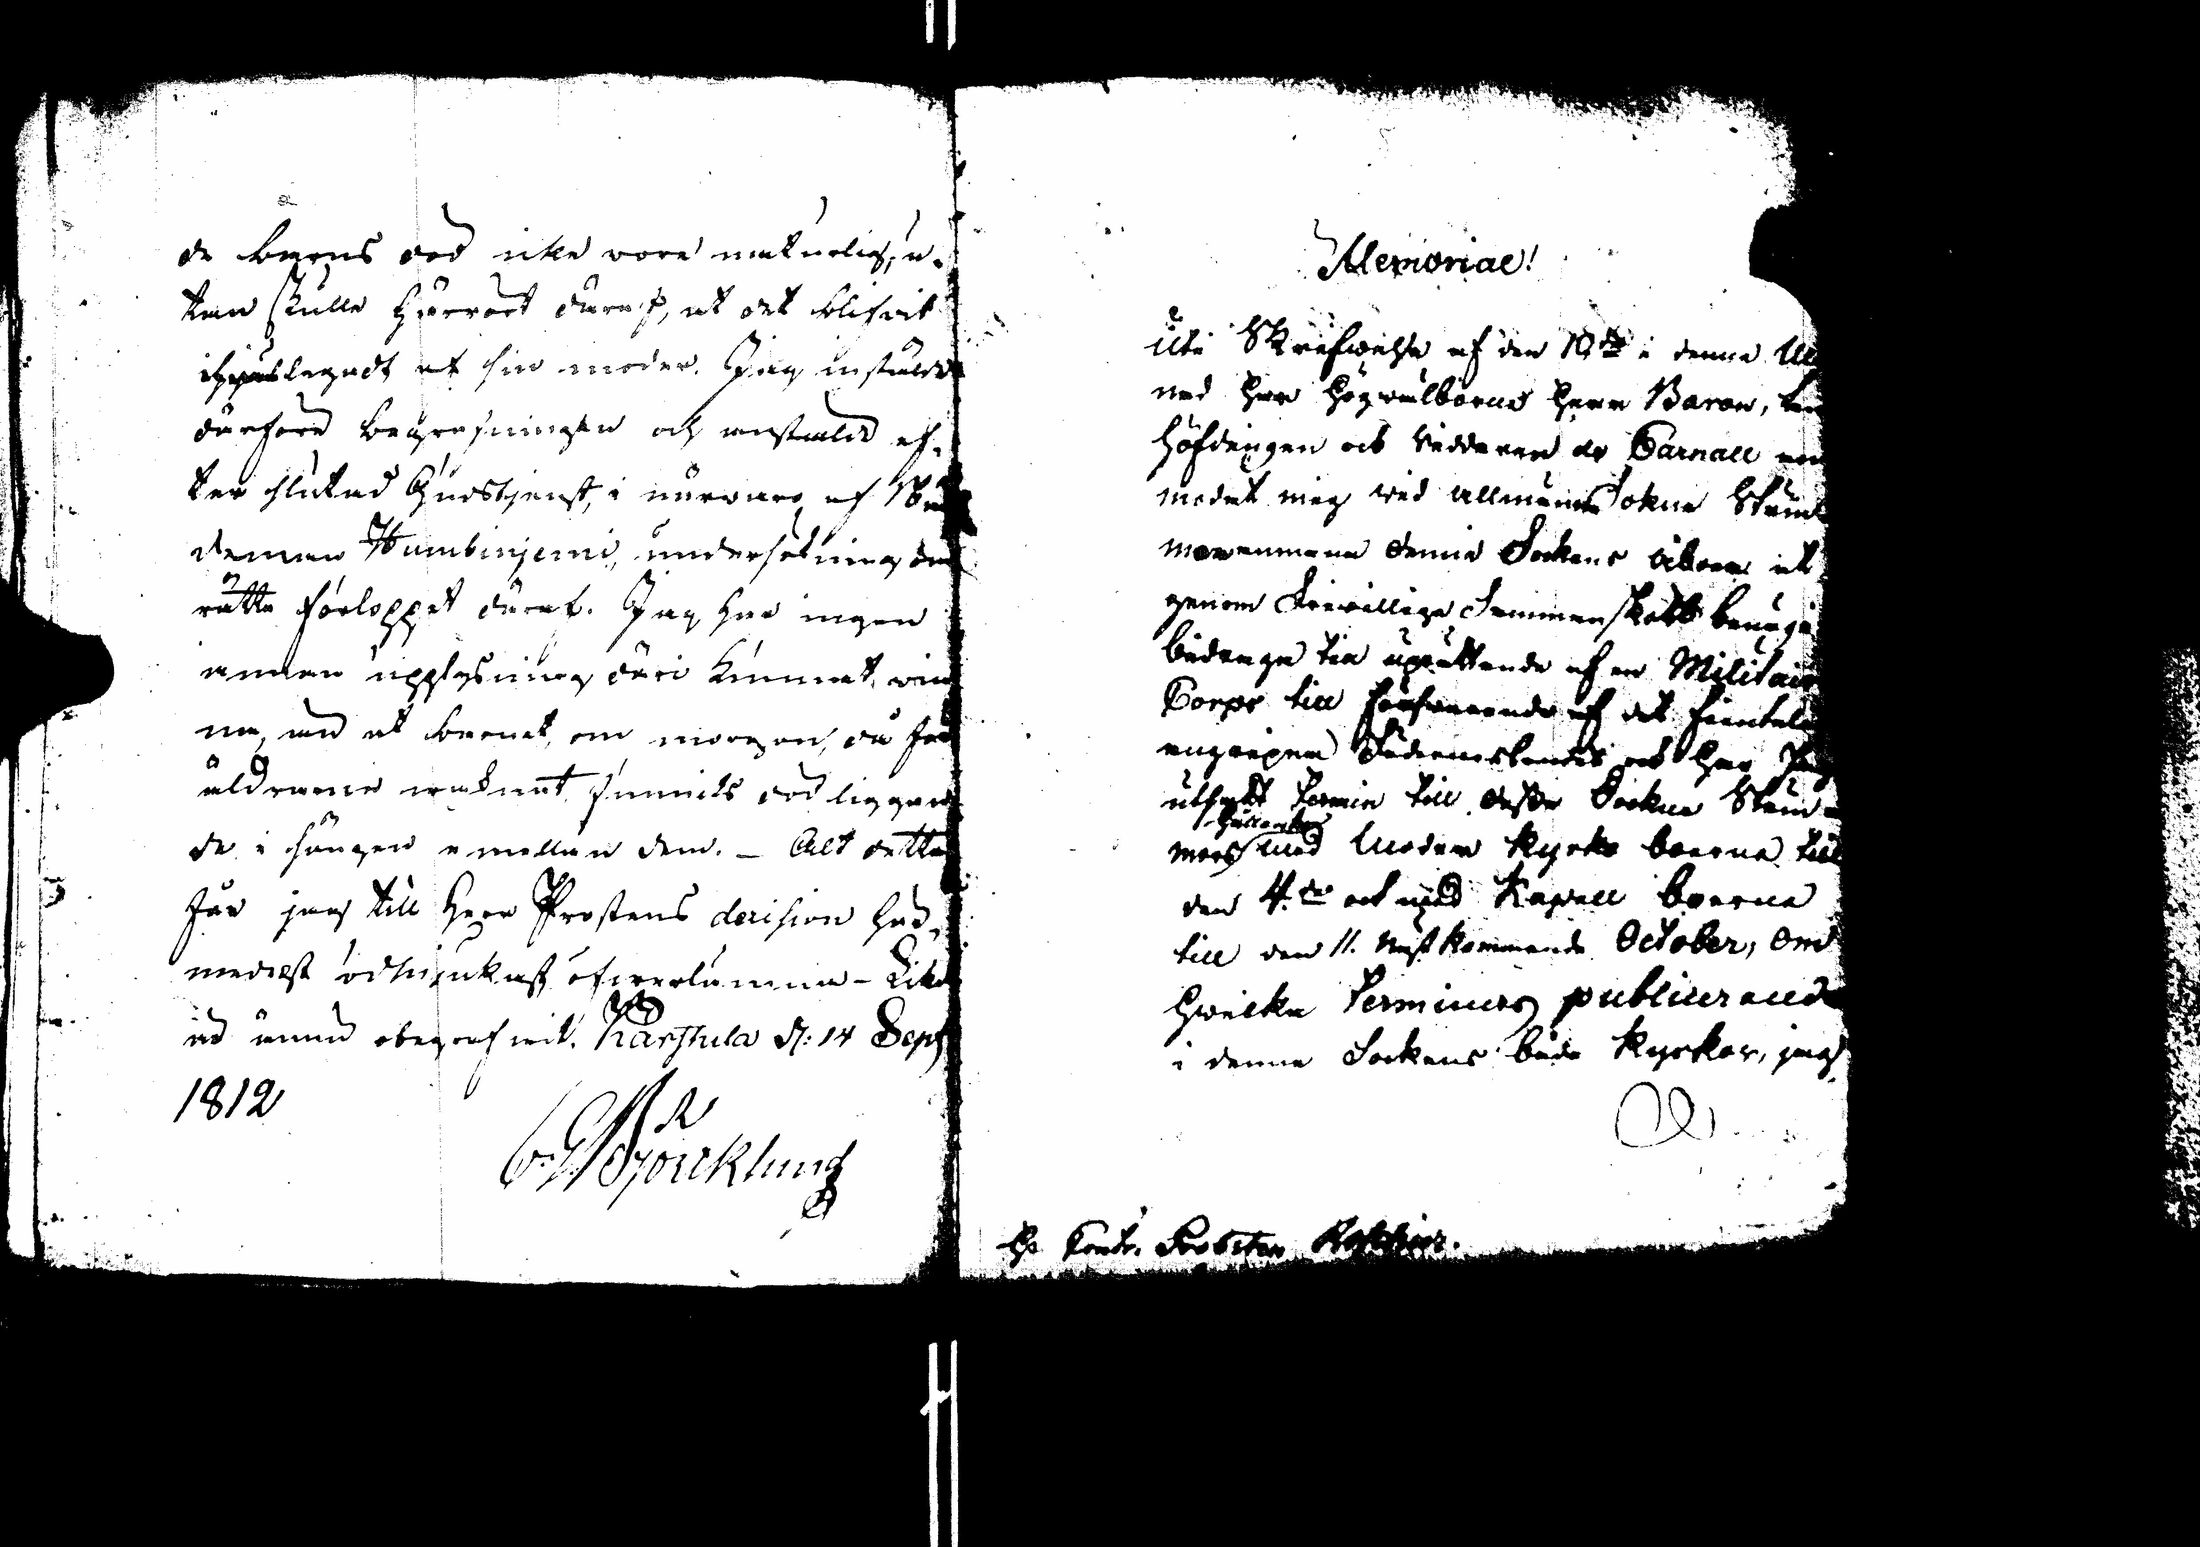 de barns död icke vore naturlig, u-
tan skulle härrört däraf, at det blifvit
ihjälslegadt af sin moder. Jag instälde
därföre begrafningen och anstälde ef-
ter slutad Gudstjenst, i närvaro af
deman Humbinjemi, undersökning om
rätta förloppet däraf. Jag har ingen
annan upplysning däri kunnat vin
na, än at barnet, om morgonen, då för
äldrarne vaknat, funnits död liggan
de i sängen emellan dem. – Alt detta
får jag till Herr Prostens decision höd-
mjukast öfverlämna – Liket
är ännu obegrafvit. Karstula d: 14 Sept
1812
Björcklund
Memoriae!
Uti Skrifwelse af den 10de i denne
med Herr Högwälborne Herr Baron,
höfdingen och Riddaren de Carnall
modat mig wid allmänna Sokne Stäm
denne Sockens åboer at
genom friwillige Sammanskott benäge
bidraga till uprättande af en Militair
Corps till försvarande af det fientel
angripna Fäderneslandet och har Jag
utsatt Termin till desse Sockne Stäm-
mors med Moder kyrko boerne till
den 4de och med Kapell boerne
till den 11. nästkommande October, Om
hwilka Terminers publicerande
i denne Sockens båda Kyrkor, jag
H. Contr. Probsten